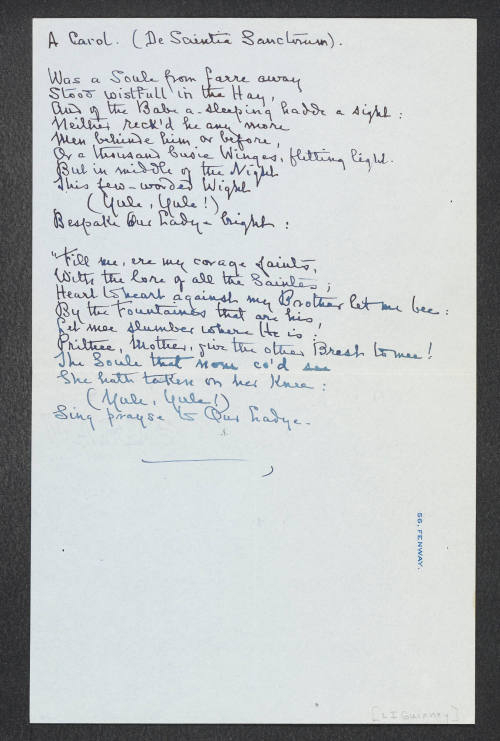 A Carol. (De Scientia Sanctorum).
Was a Soule from farre away
Stood wistfull in the Hay,
And of the Babe a-sleeping hadde a sight:
Neither reck'd he any more
Men behinde him or before,
Or a thousand busie Winges, flitting light.
But in middle of the Night
This few-worded Wight
(Yule, Yule!)
Bespake Our Ladye bright:
"Fill me, ere my corage faints,
With the lore of all the Saintes;
Heart to heart against my Brother let me bee:
By the Fountaines that are his,
Let mee slumber where He is:
Prithee, Mother, give the other Brest to mee!
The Soule that none co'd see
She hath taken on her Knee:
(Yule, Yule!)
Sing prayse to Our Ladye.
56. FENWAY.
[L I Guiney]